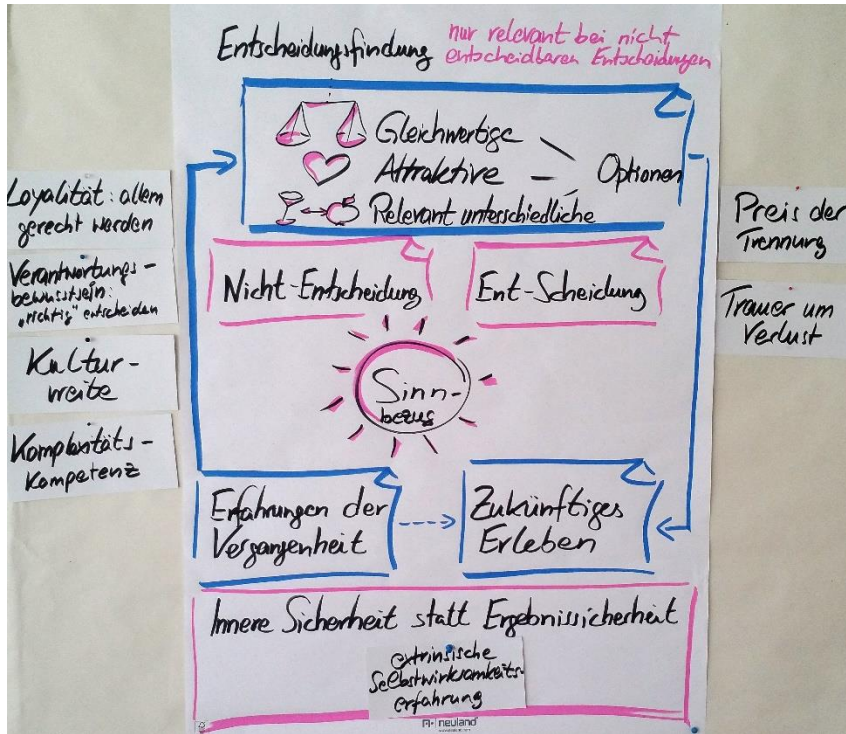 Entscheidungsfindung
nur relevant bei nicht
entscheidbaren Entscheidungen
Gleichwertige
Attraktive
Optionen
Relevant unterschiedliche
Loyalität: allem
gerecht werden
Verantwortungs-
bewusstsein:
„richtig“ entscheiden
Kultur-
weite
Komplexitäts-
Kompetenz
Nicht-Entscheidung
Ent-Scheidung
Preis der
Trennung
Trauer um
Verlust
Sinn-
bezug
Erfahrungen der
Vergangenheit
Zukünftiges
Erleben
Innere Sicherheit statt Ergebnissicherheit
extrinsische
Selbstwirksamkeits-
erfahrung
neuland